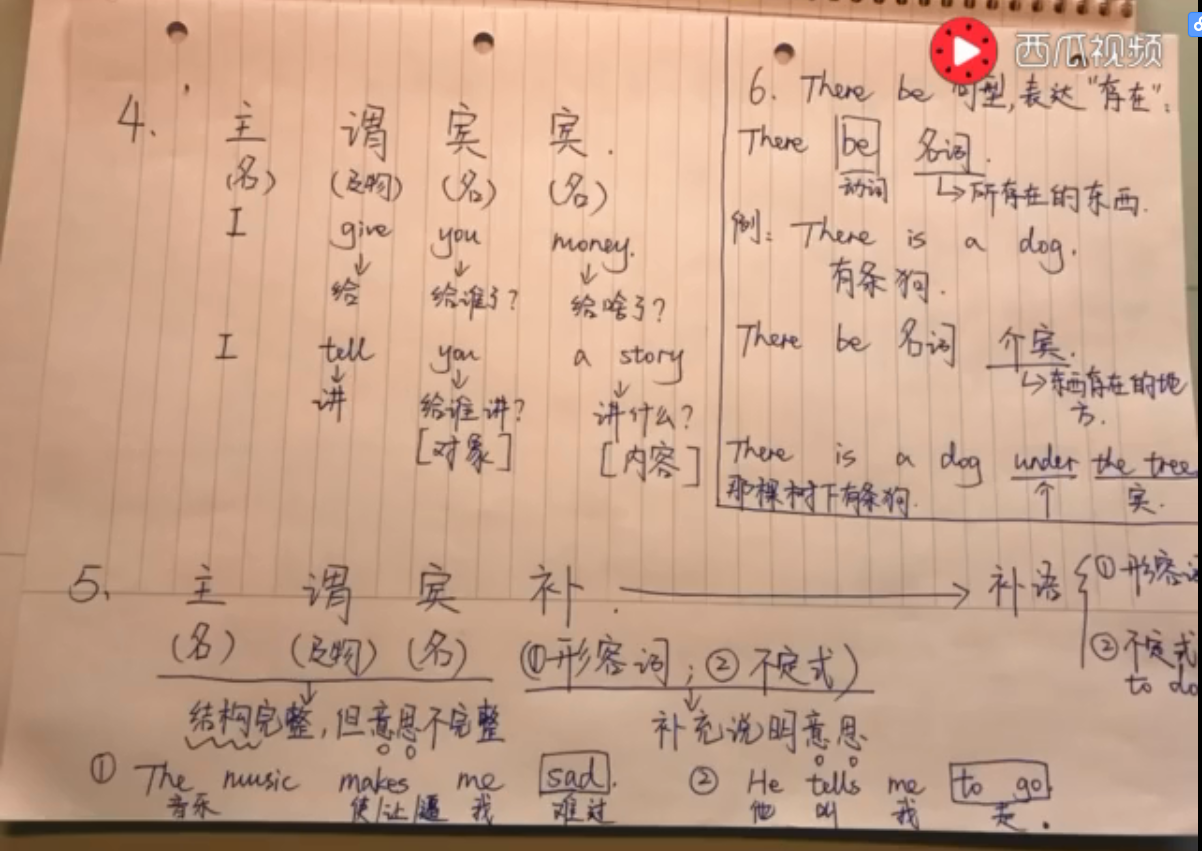 西瓜视频
4. 主 谓 宾 宾.
(名) (及物) (名) (名)
I give you money.
↓ ↓ ↓
给 给谁了? 给啥了?
I tell you a story
↓ ↓ ↓
讲 给谁讲? 讲什么?
[对象] [内容]
6. There be 句型,表达"存在":
There be 名词.
动词 ↳所存在的东西.
例: There is a dog.
有条狗.
There be 名词 介宾.
↳东西存在的地
方.
There is a dog under the tree
那棵树下有条狗. 介 宾.
5. 主 谓 宾 补. → 补语 { ①形容词
(名) (及物) (名) (①形容词; ②不定式) ②不定式
to do
结构完整,但意思不完整 补充说明意思
① The music makes me sad. ② He tells me to go.
音乐 使/让/逼 我 难过 他 叫 我 走.